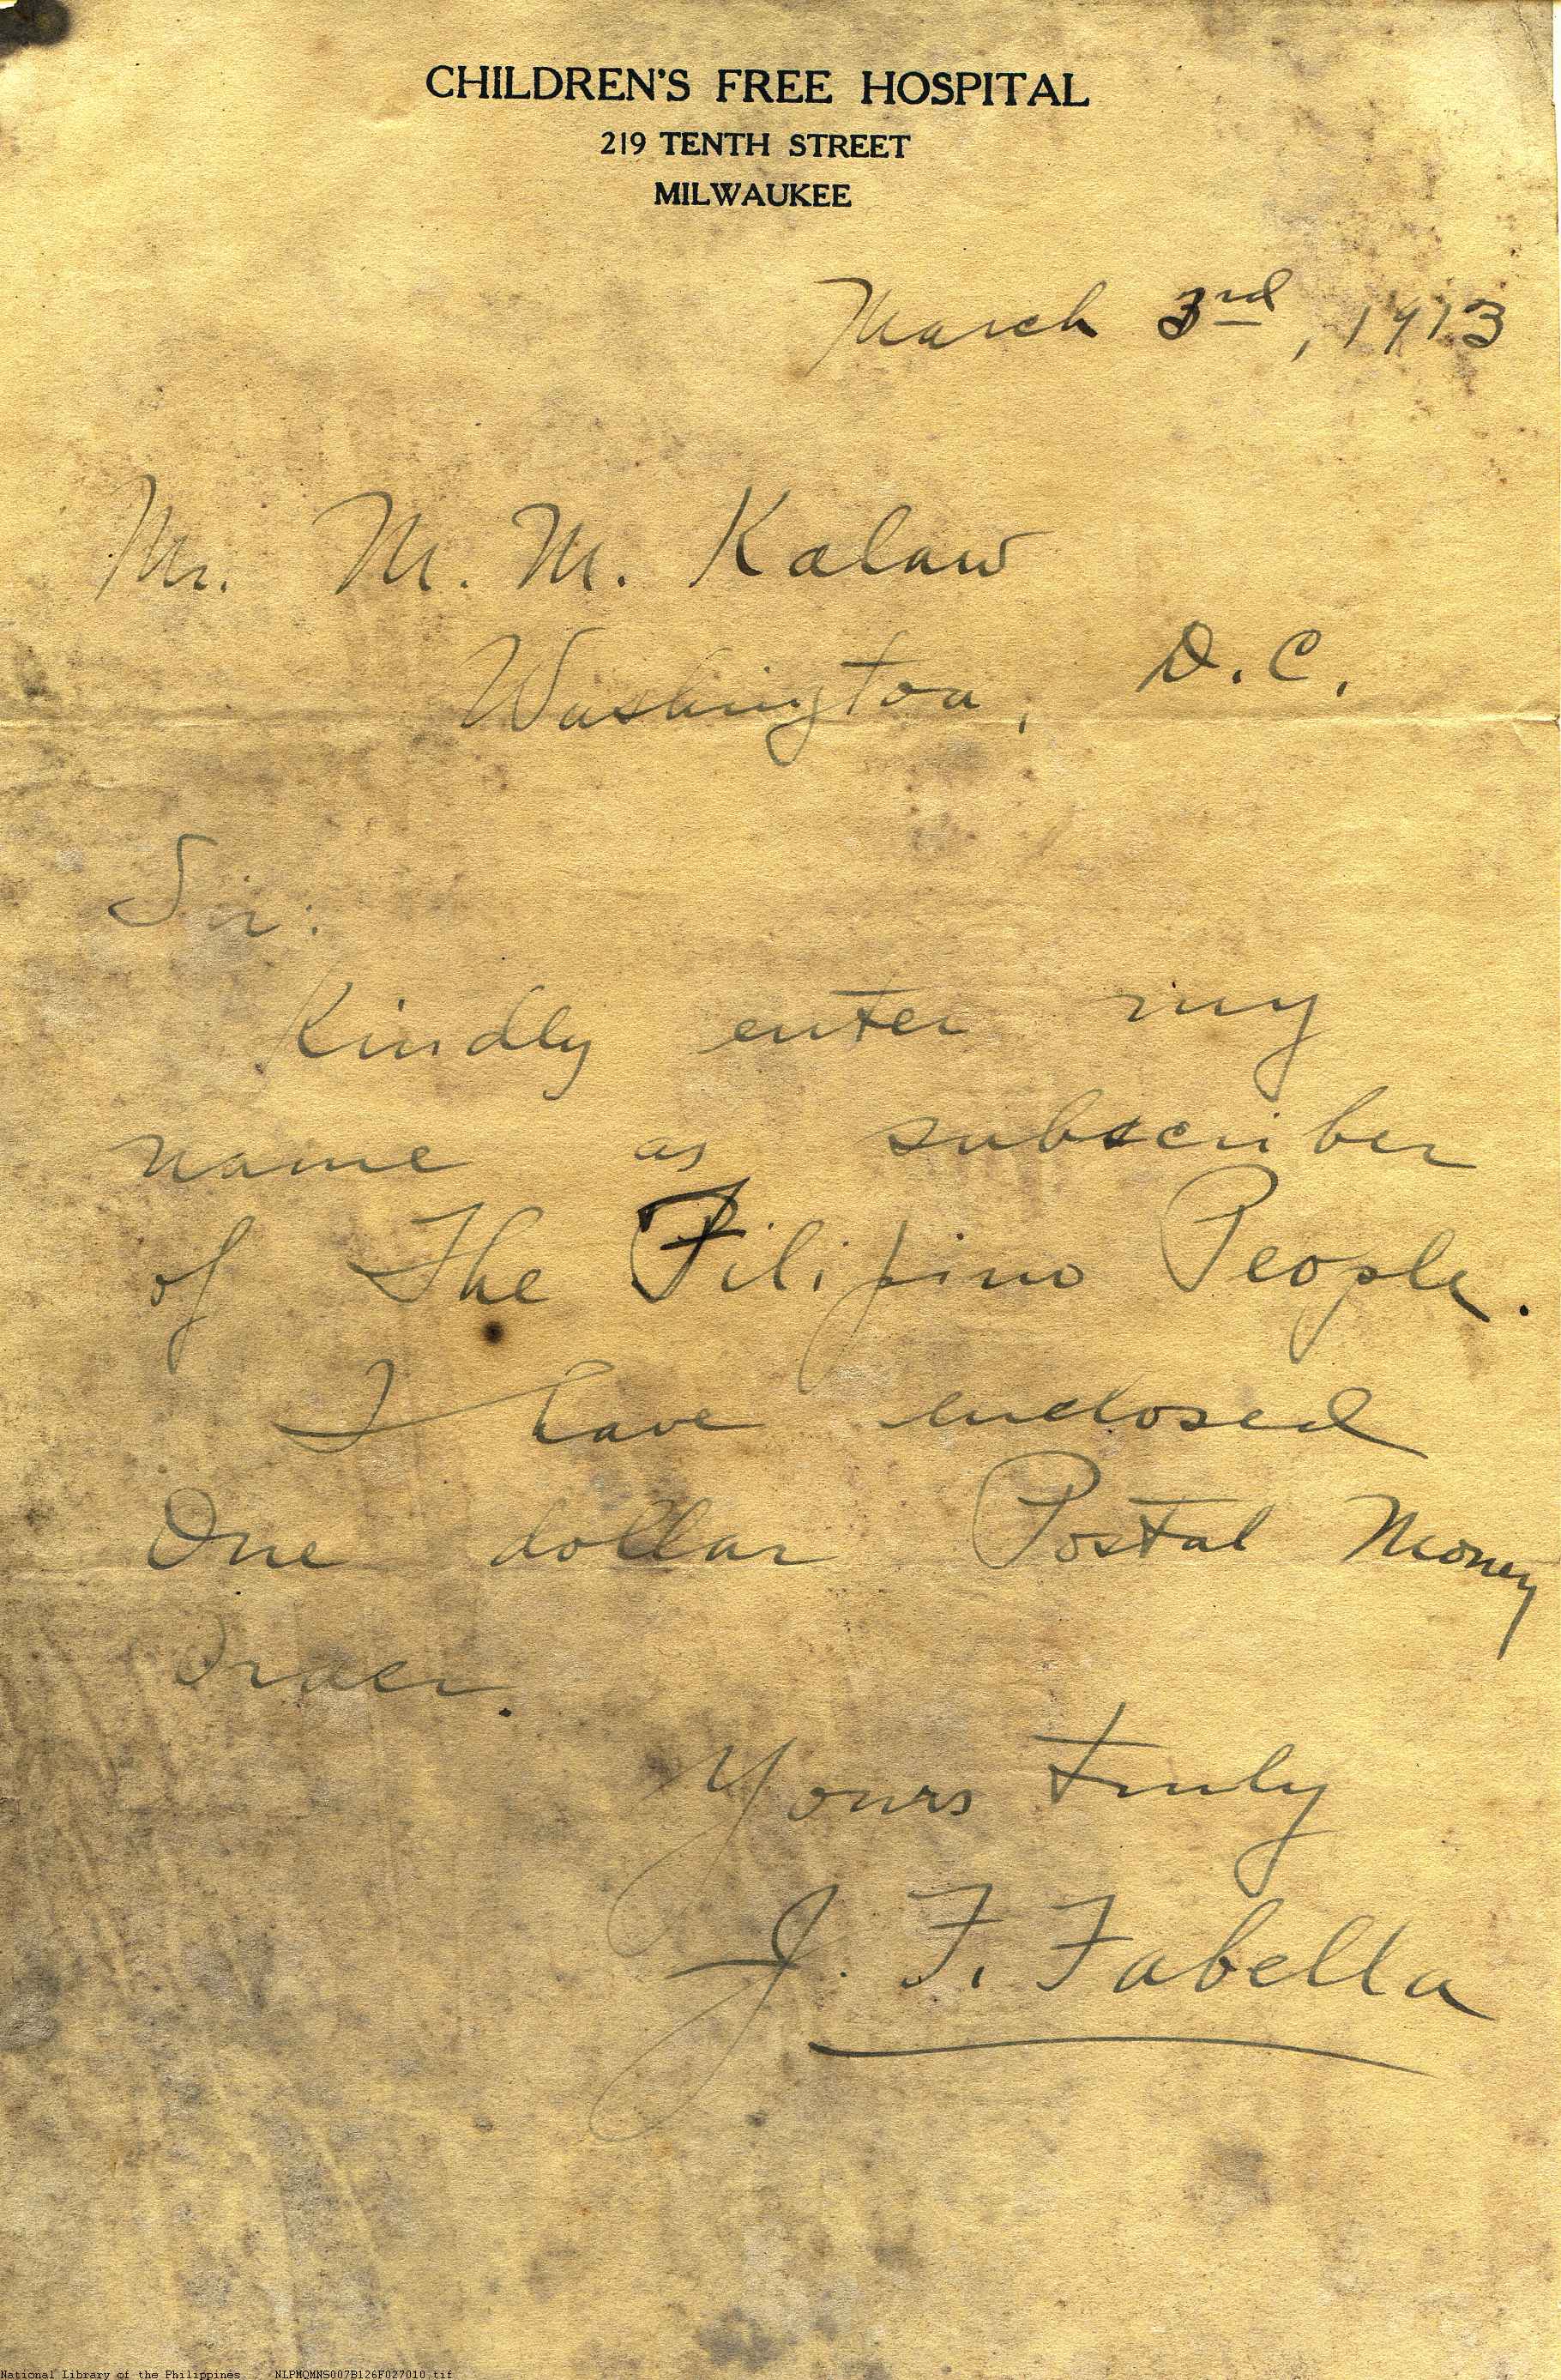 CHILDREN'S FREE HOSPITAL
219 TENTH STREET
MILWAUKEE
March 3rd, 1913
Mr. M. M. Kalaw
Washington, D.C.
Sir:
Kindly enter my
name as subscriber
of The Filipino People.
I have enclosed
One dollar Postal Money
Order.
Yours truly
J. F. Fabella
National Library of the Philippines NLPMQMNS007B126F027010.tif